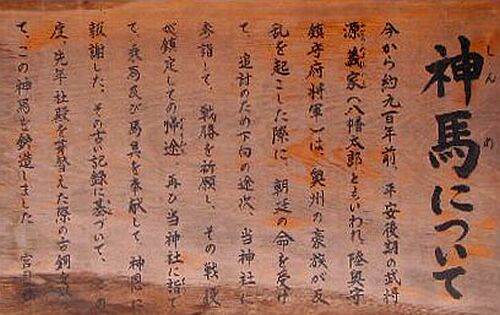 神馬について
しんめ
今から約九百年前、平安後期の武将
源義家(八幡太郎ともいわれ陸奥守
鎮守府将軍)は、奥州の豪族が反
乱を起こした際に、朝廷の命を受け
て、追討のため下向の途次、当神社に
参詣して、戦勝を祈願し、その戦後
が鎮定しての帰途、再び当神社に詣で
て、乗馬及び馬具を奉献して、神恩に
報謝した、その古い記録に基づいて、この
度、先年社殿を葺替えた際の古銅を
て、この神馬を鋳造しました
宮司